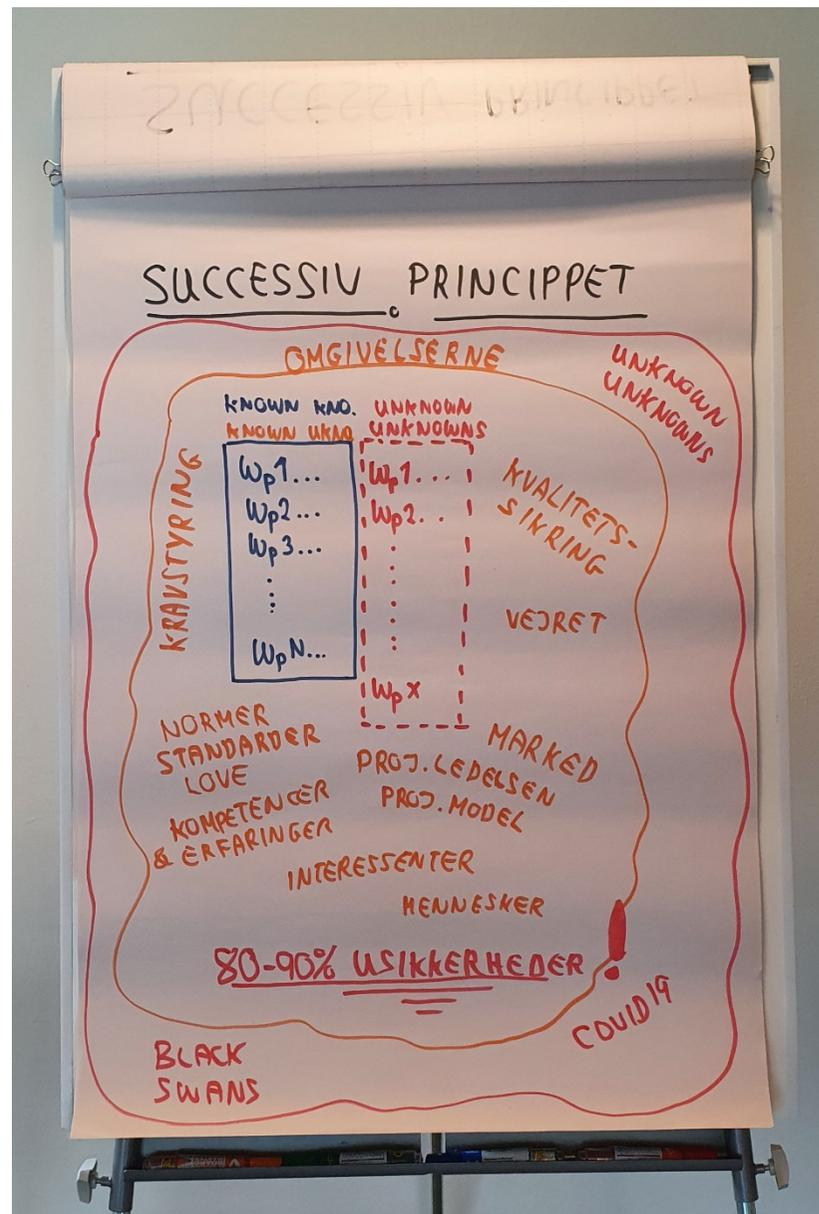 SUCCESSIV PRINCIPPET
SUCCESSIV. PRINCIPPET
OMGIVELSERNE
UNKNOWN
UNKNOWNS
KNOWN KNO.
KNOWN UKNO
UNKNOWN
UNKNOWNS
KRAVSTYRING
Wp1...
Wp2...
Wp3...
WpN...
Wp1...
Wp2..
Wpx
KVALITETS-
SIKRING
VEJRET
NORMER
STANDARDER
LOVE
KOMPETENCER
& ERFARINGER
MARKED
PROJ. LEDELSEN
PROJ. MODEL
INTERESSENTER
MENNESKER
80-90% USIKKERHEDER
!
COVID19
BLACK
SWANS